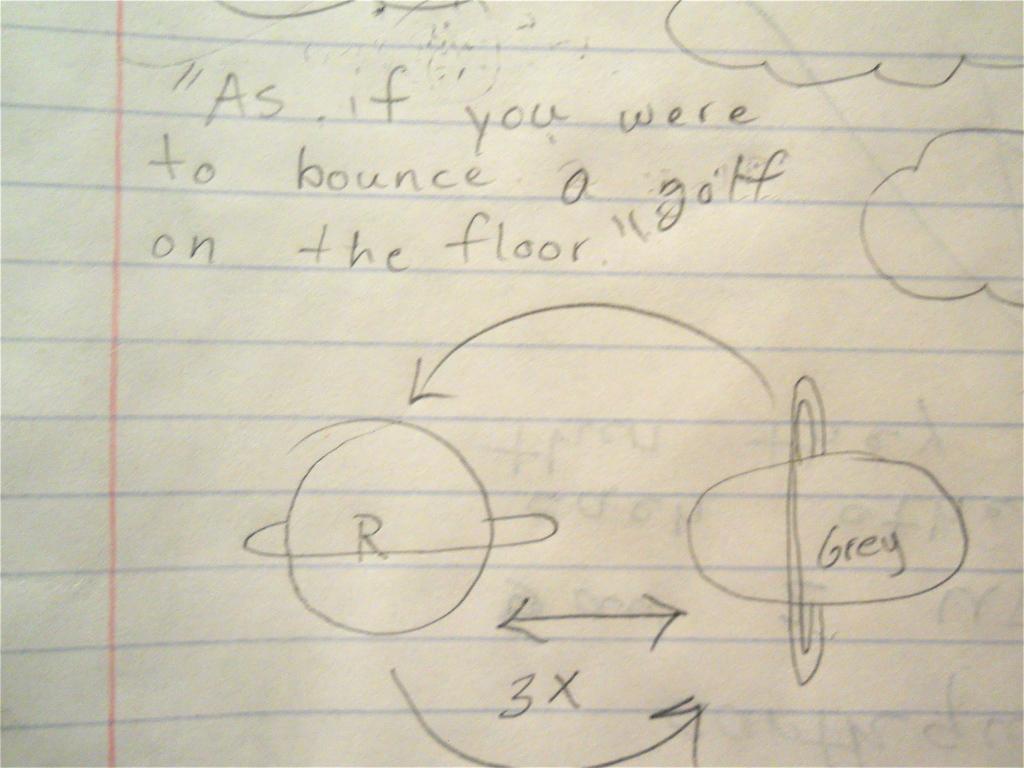 "As if you were
to bounce a golf
on the floor."
R
Grey
3X